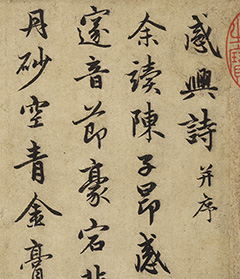 感興詩 并序
余讀陳子昂感
邃音節豪宕非
丹砂空青金膏